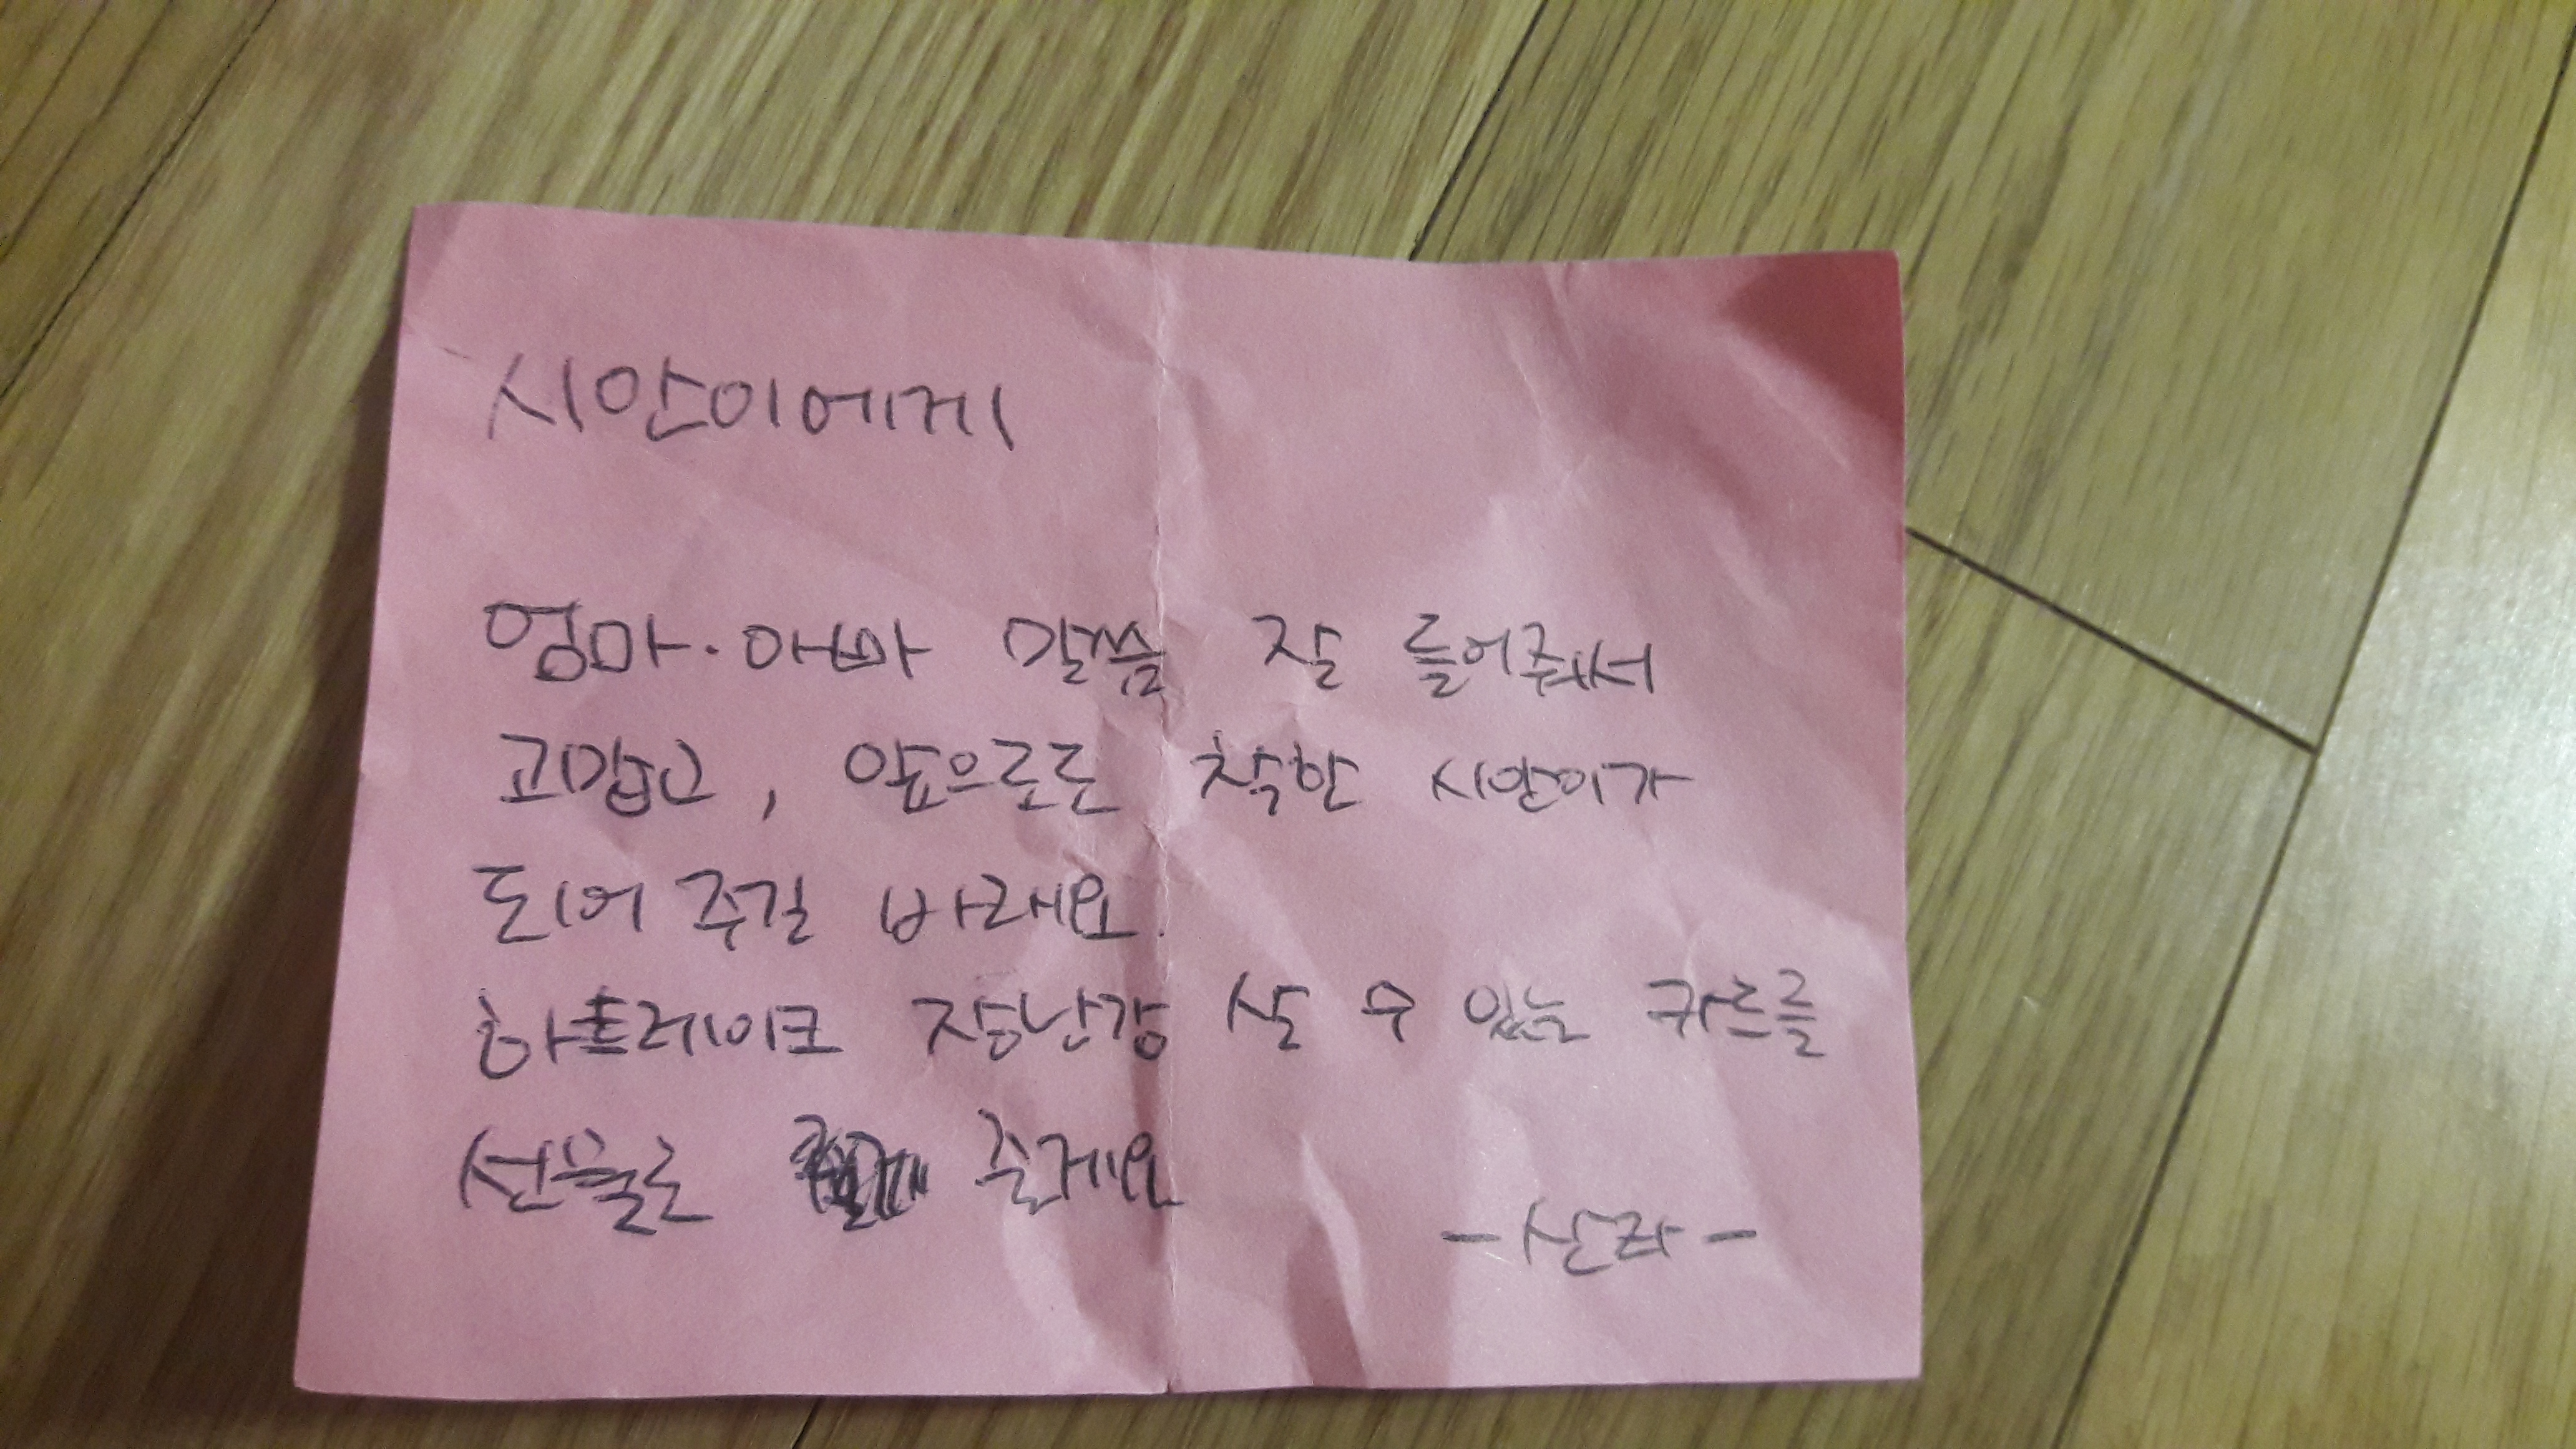 시안이에게
엄마·아빠 말씀 잘 들어줘서
고맙고, 앞으로도 착한 시안이가
되어 주길 바래요.
하츄레이크 장난감 살 수 있는 카드를
선물로 줄게요
-산타-